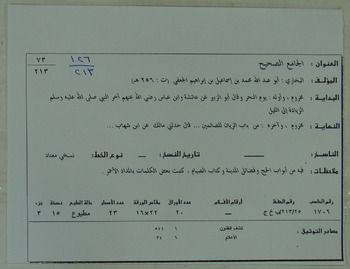 العنوان : الجامع الصحيح
١٢٦ ٧٣
٢١٣ ٢١٣
المؤلف : البخاري : أبو عبد الله محمد بن إسماعيل بن إبراهيم الجعفي (ت : ٢٥٦ هـ)
البداية : مخروم ، وأوله : يوم النحر وقال أبو الزبير عن عائشة وابن عباس رضي الله عنهم أخر النبي صلى الله عليه وسلم
الزيارة إلى الليل
النهاية : مخروم ، وآخره : من باب الريان للصائمين ... قال حدثني مالك عن ابن شهاب ...
الناسخ : — تاريخ النسخ : — نوع الخط : نسخي معتاد
ملاحظات : فيه من أبواب الحج وفضائل المدينة وكتاب الصيام ، كتبت بعض الكلمات بالمداد الأحمر .
رقم الحاسب رقم الحفظ أرقام الأفلام عدد الأوراق مقاس الورقة عدد الأسطر حالة الطبع فن جزء
١٧٠٦ ٢١٣/٢٥ — ٢٠ ١٦×٢٢ ٢٣ مطبوع ١٥ ٣
مصادر التوثيق : كشف الظنون ١ ٥٤١
الأعلام ٦ ٣٤